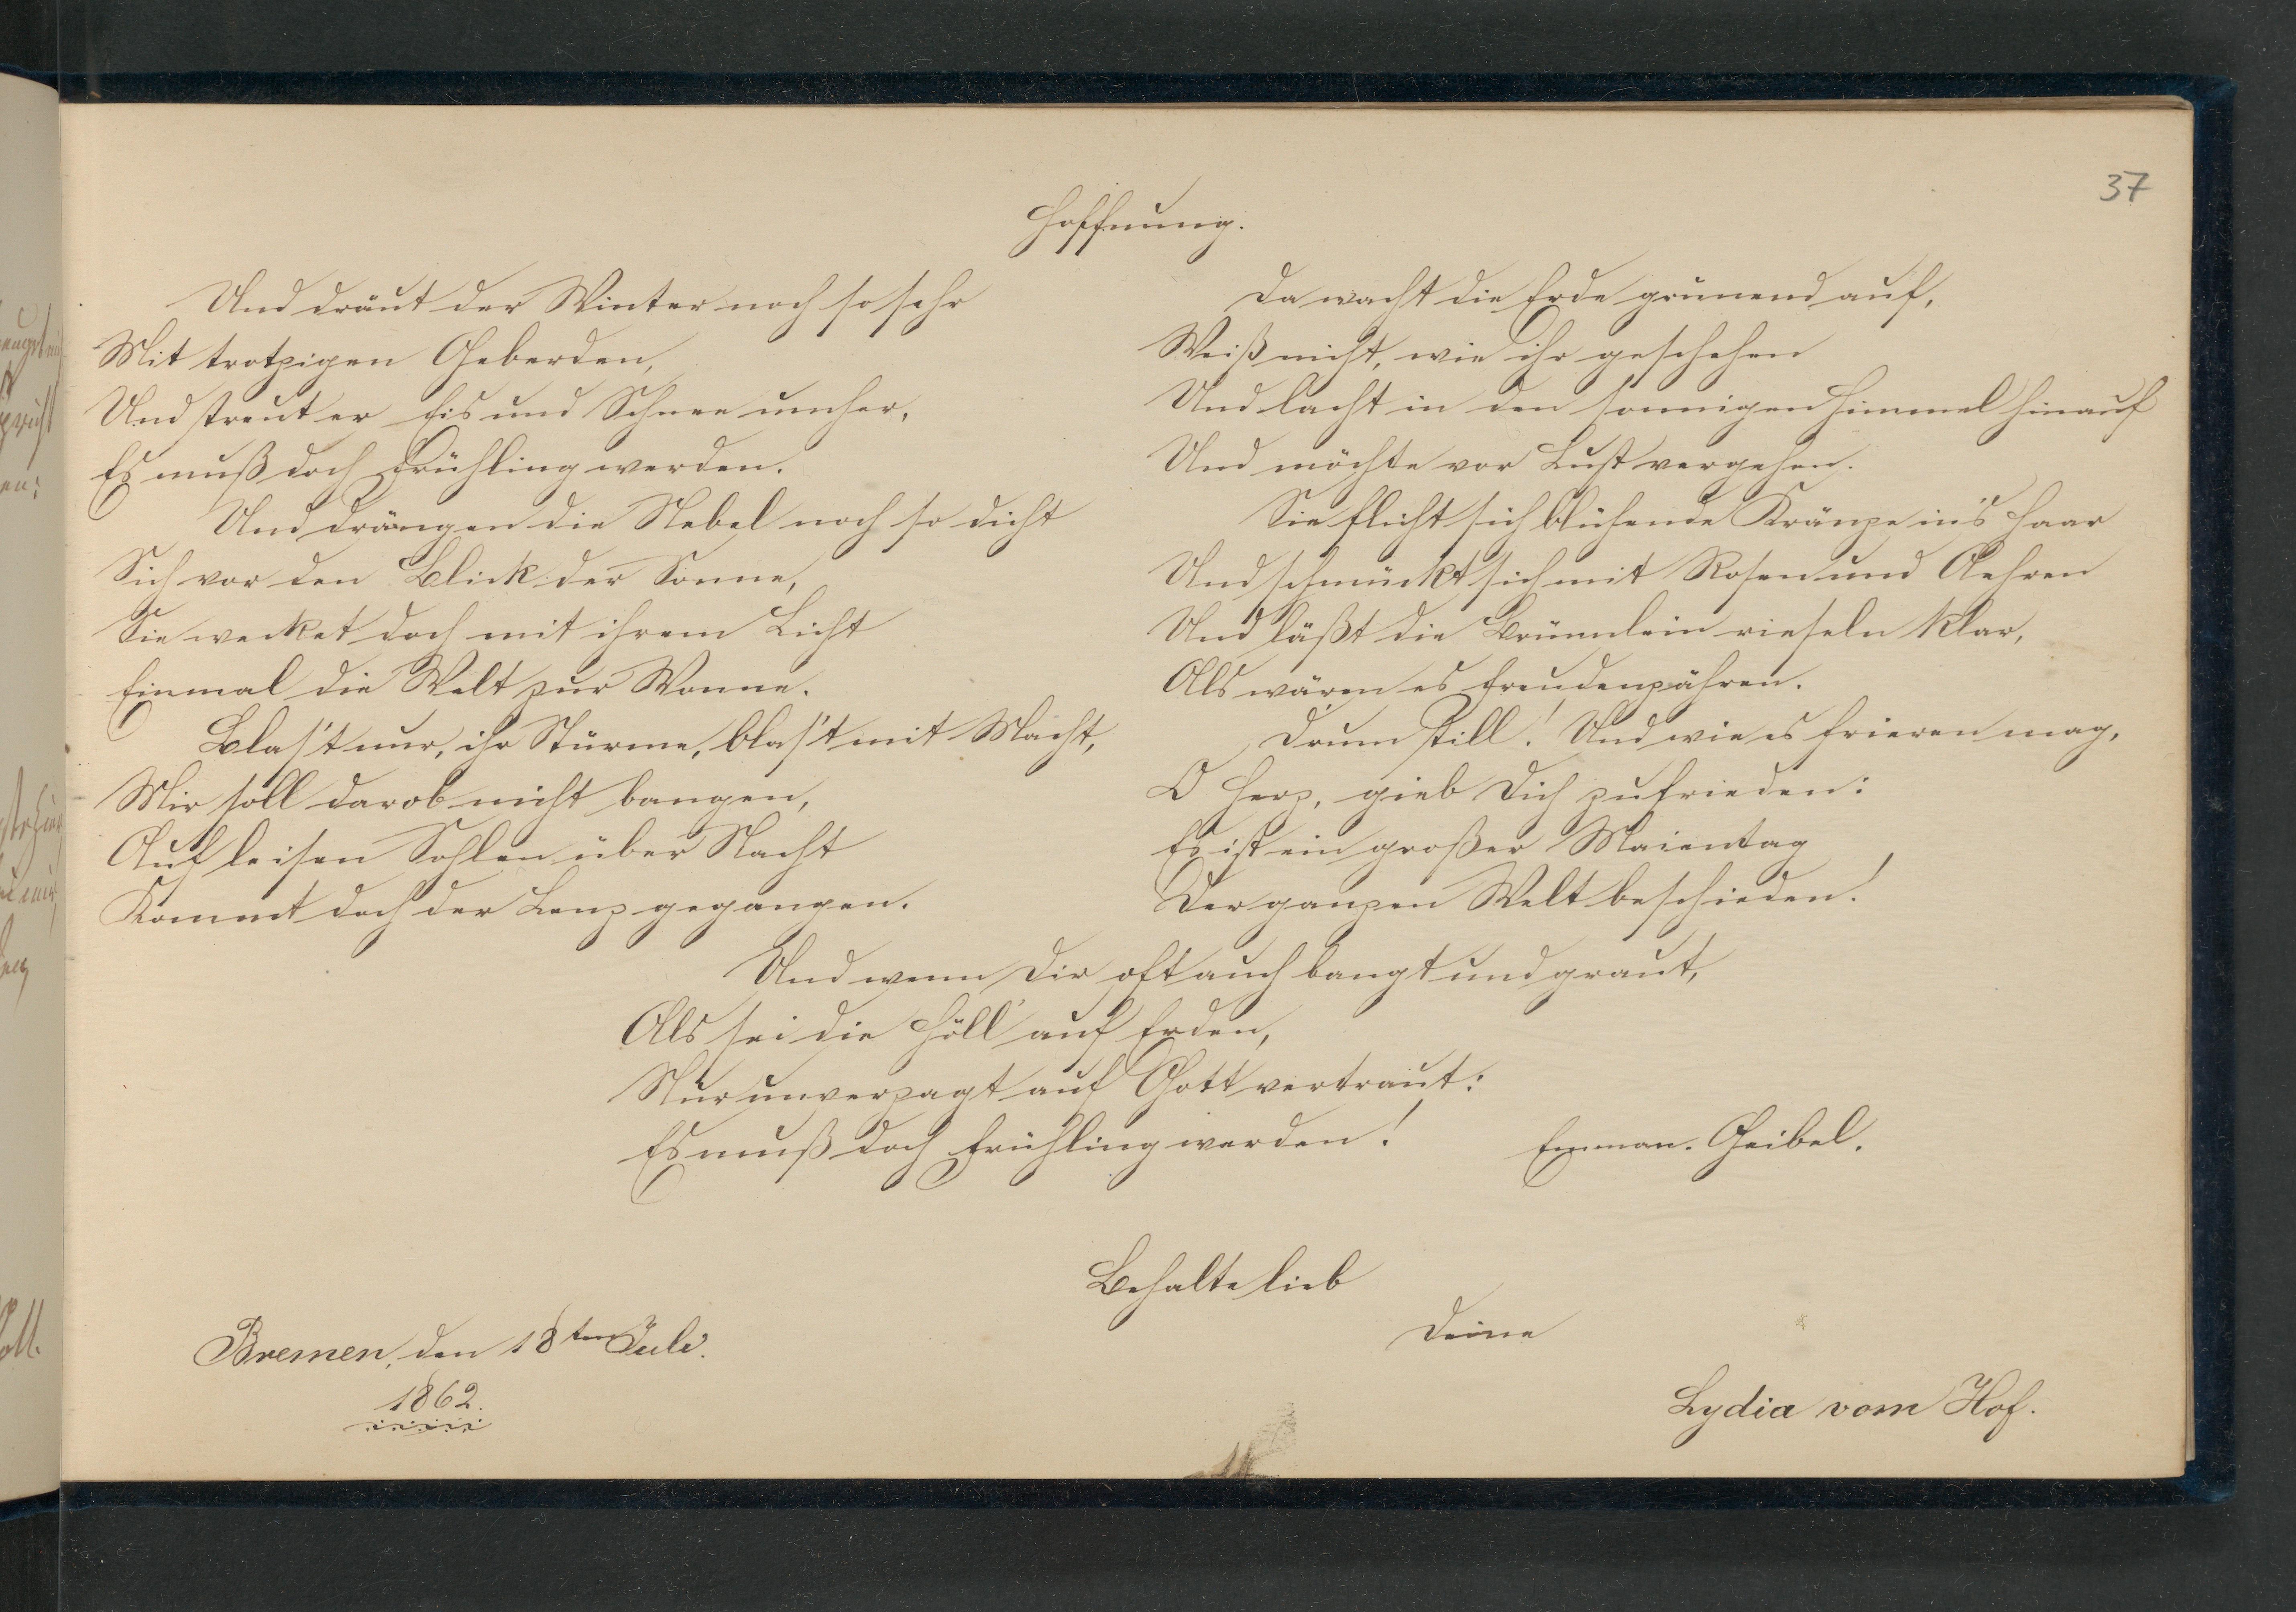 37
Hoffnung.
Und dräut der Winter noch so sehr
Mit trotzigen Geberden,
Und streut er Eis und Schnee umher,
Es muß doch Frühling werden.
Und drängen die Nebel noch so dicht
Sich vor den Blick der Sonne,
Sie wecket doch mit ihrem Licht
Einmal die Welt zur Wonne.
Blas't nur, ihr Stürme, blas't mit Macht,
Mir soll darob nicht bangen,
Auf leisen Sohlen über Nacht
Kommt doch der Lenz gegangen.
Da wacht die Erde grünend auf,
Weiß nicht, wie ihr geschehen
Und lacht in den sonnigen Himmel hinauf
Und möchte vor Lust vergehen.
Sie flicht sich blühende Kränze in's Haar
Und schmückt sich mit Rosen und Aehren
Und läßt die Brünnlein rieseln klar,
Als wären es Freudenzähren.
Drum still! Und wie es frieren mag,
O Herz, gieb Dich zufrieden:
Es ist ein großer Maientag
Der ganzen Welt beschieden!
Und wenn Dir oft auch bangt und graut,
Als sei die Höll' auf Erden,
Nur unverzagt auf Gott vertraut:
Es muß doch Frühling werden!
Emman. Geibel.
Behalte lieb
Deine
Lydia vom Hof.
Bremen, den 18ten Juli.
1862.